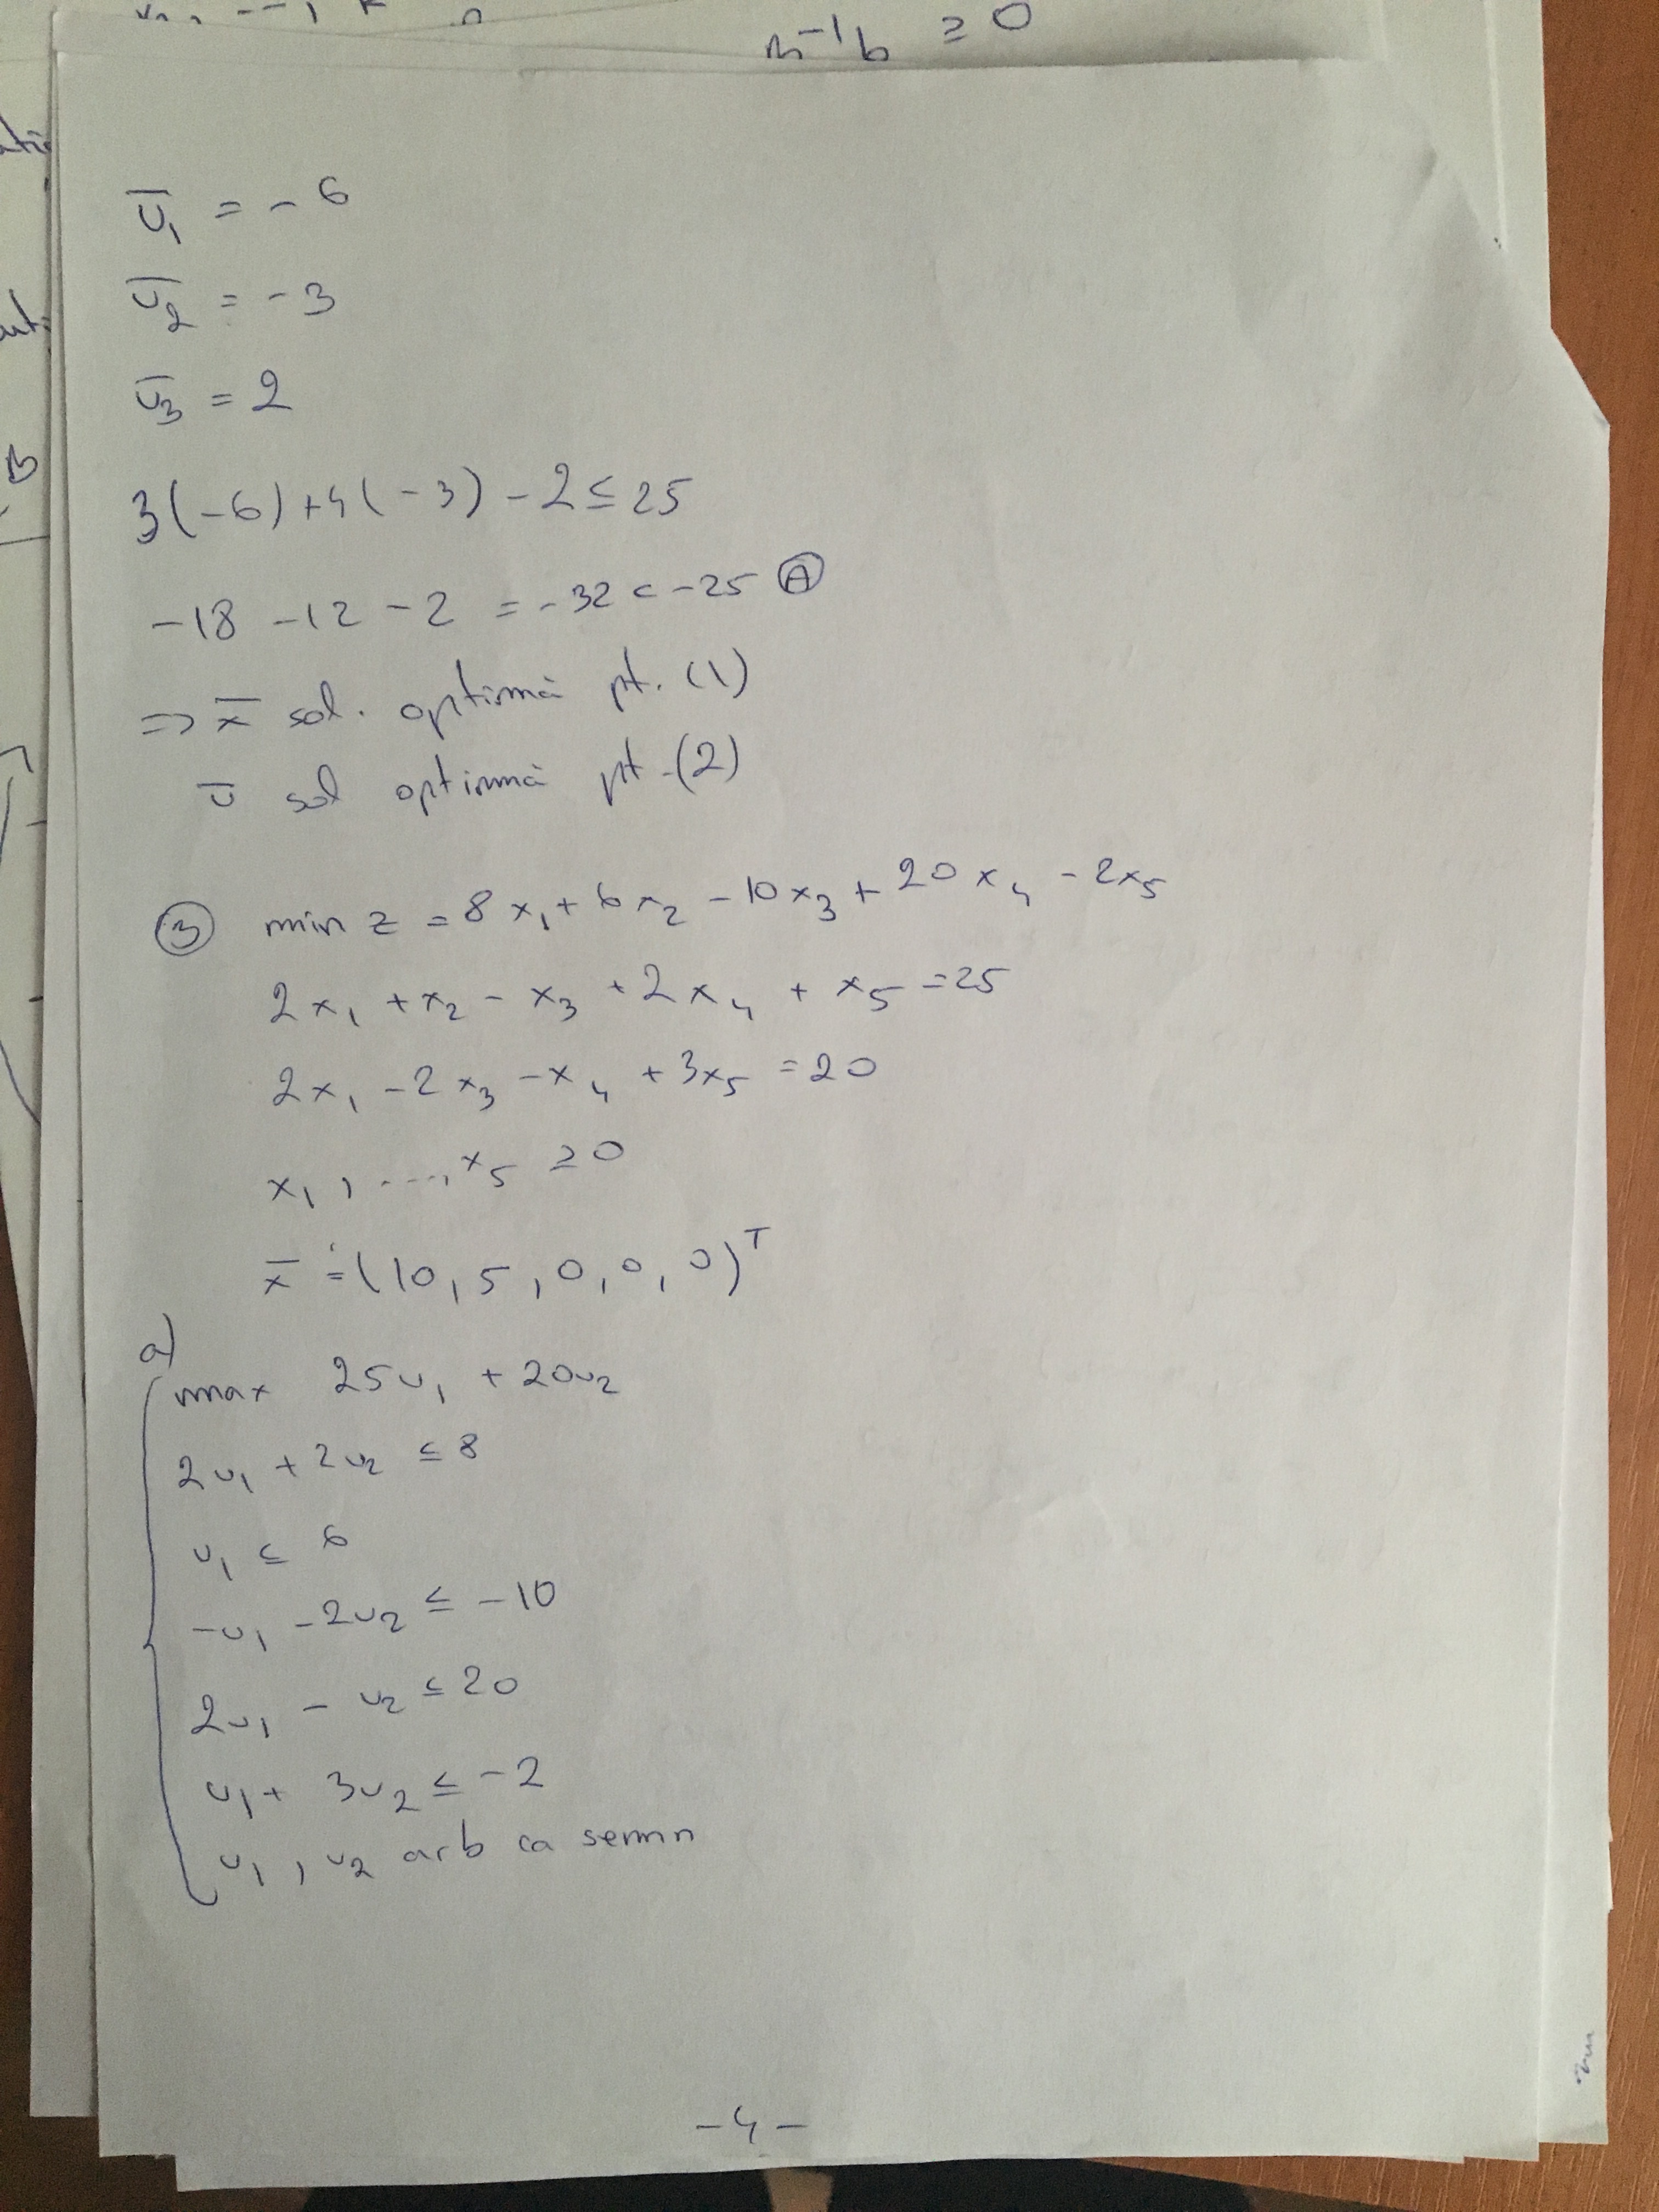 m⁻¹b ≥ 0
B
ū₁ = -6
ū₂ = -3
ū₃ = 2
3(-6)+4(-3) - 2 ≤ 25
-18 -12 -2 = -32 < -25 Ⓐ
=> x̄ sol. optimă pt. (1)
ū sol optimă pt. (2)
③ min z = 8x₁ + 6x₂ - 10x₃ + 20x₄ - 2x₅
2x₁ + x₂ - x₃ + 2x₄ + x₅ = 25
2x₁ - 2x₃ - x₄ + 3x₅ = 20
x₁, ..., x₅ ≥ 0
x̄ = (10, 5, 0, 0, 0)ᵀ
a)
max 25u₁ + 20u₂
2u₁ + 2u₂ ≤ 8
u₁ ≤ 6
-u₁ - 2u₂ ≤ -10
2u₁ - u₂ ≤ 20
u₁ + 3u₂ ≤ -2
u₁, u₂ arb ca semn
-4-